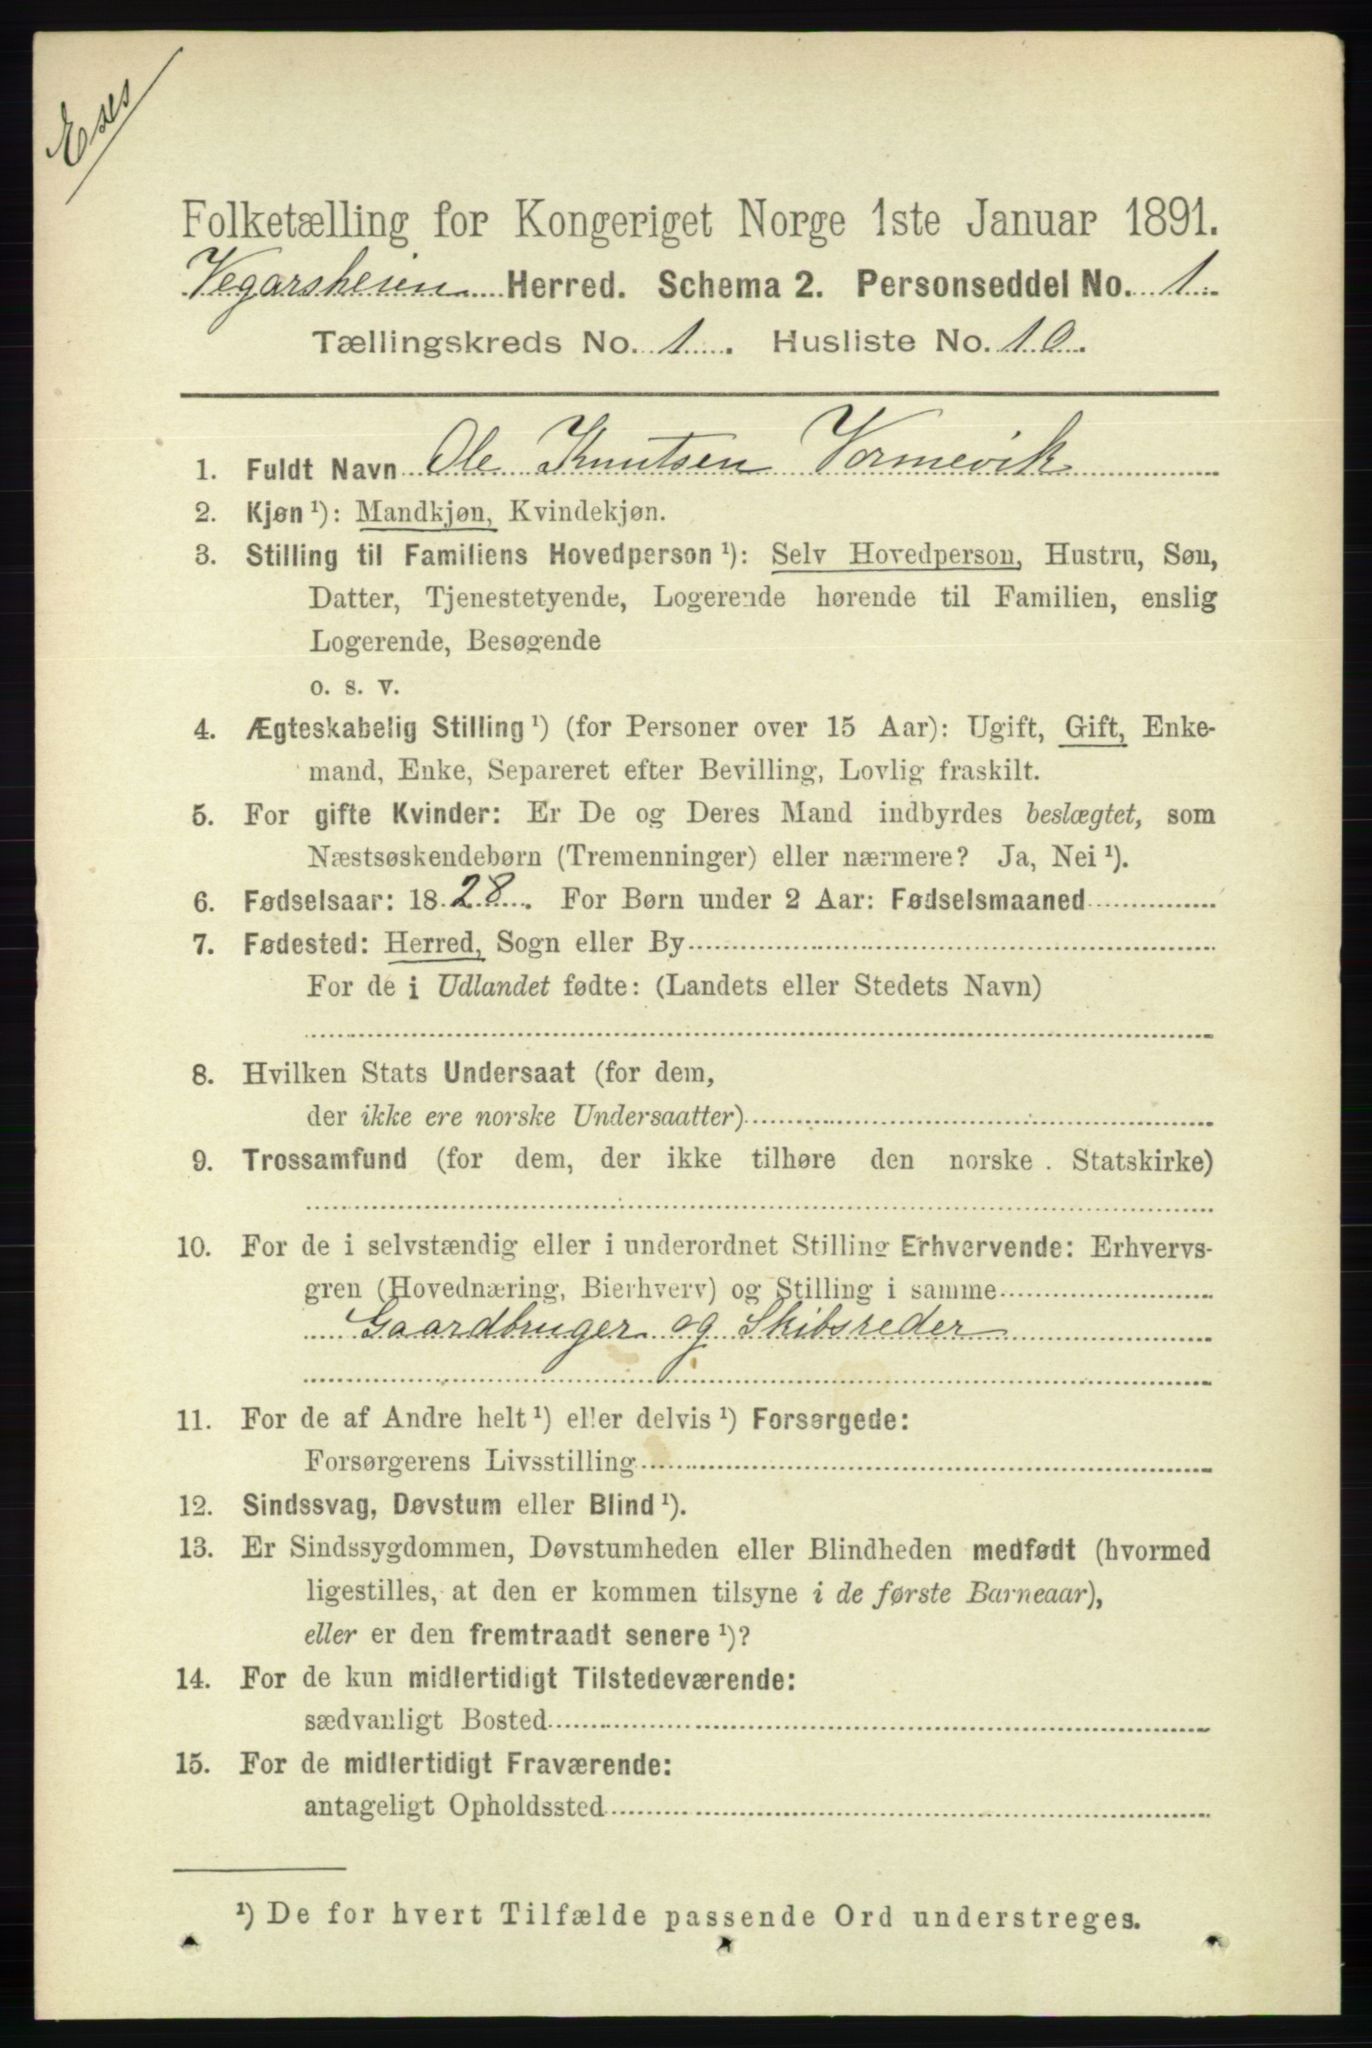 Folketælling for Kongeriget Norge 1ste Januar 1891.
Vegarsheien Herred. Schema 2. Personseddel No. 1
Tællingskreds No. 1. Husliste No. 10.
1. Fuldt Navn Ole Knutsen Vormevik
2. Kjøn ¹): Mandkjøn, Kvindekjøn.
3. Stilling til Familiens Hovedperson ¹): Selv Hovedperson, Hustru, Søn,
Datter, Tjenestetyende, Logerende hørende til Familien, enslig
Logerende, Besøgende
o. s. v.
4. Ægteskabelig Stilling ¹) (for Personer over 15 Aar): Ugift, Gift, Enke-
mand, Enke, Separeret efter Bevilling, Lovlig fraskilt.
5. For gifte Kvinder: Er De og Deres Mand indbyrdes beslægtet, som
Næstsøskendebørn (Tremenninger) eller nærmere? Ja, Nei ¹).
6. Fødselsaar: 1828. For Børn under 2 Aar: Fødselsmaaned
7. Fødested: Herred, Sogn eller By
For de i Udlandet fødte: (Landets eller Stedets Navn)
8. Hvilken Stats Undersaat (for dem,
der ikke ere norske Undersaatter)
9. Trossamfund (for dem, der ikke tilhøre den norske . Statskirke)
10. For de i selvstændig eller i underordnet Stilling Erhvervende: Erhvervs-
gren (Hovednæring, Bierhverv) og Stilling i samme
Gaardbruger og Skibsreder
11. For de af Andre helt ¹) eller delvis ¹) Forsørgede:
Forsørgerens Livsstilling
12. Sindssvag, Døvstum eller Blind ¹).
13. Er Sindssygdommen, Døvstumheden eller Blindheden medfødt (hvormed
ligestilles, at den er kommen tilsyne i de første Barneaar),
eller er den fremtraadt senere ¹)?
14. For de kun midlertidigt Tilstedeværende:
sædvanligt Bosted
15. For de midlertidigt Fraværende:
antageligt Opholdssted
¹) De for hvert Tilfælde passende Ord understreges.